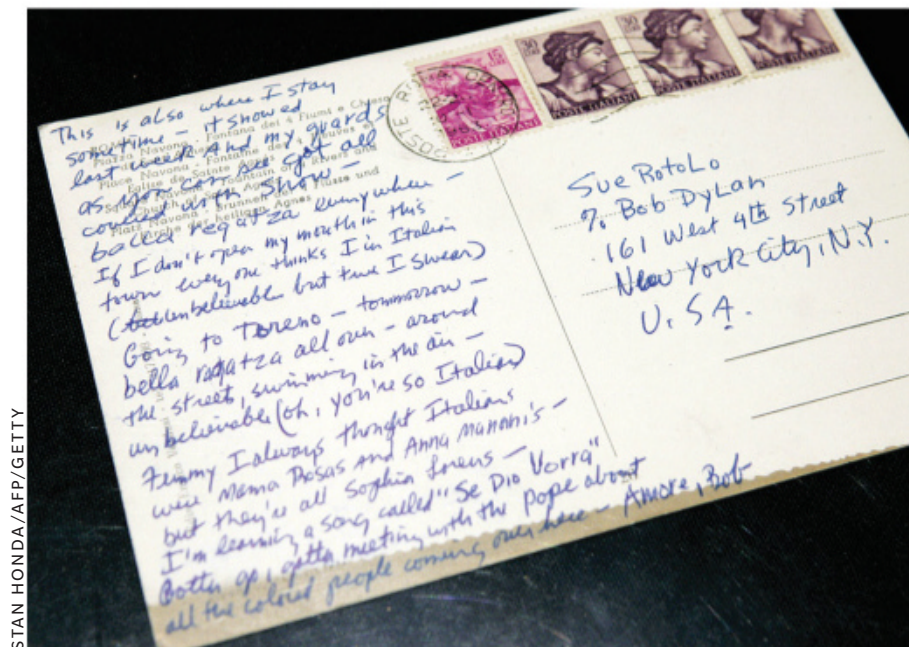 This is also where I stay
sometime – it snowed
last week and my guards
as you can see got all
covered with snow –
bella regatza everywhere –
If I don't open my mouth in this
town every one thinks I'm Italian
(unbelievable but true I swear)
Going to Toreno – tommorrow –
bella ragatza all over – around
the street, swimming in the air –
unbelievable (oh, you're so Italian)
Funny I always thought Italians
were Mama Rosas and Anna Mananni's –
but they're all Sophia Lorens –
I'm learning a song called "Se Dio Vorra"
Gotta go, gotta meeting with the Pope about
all the colored people coming over here – Amore, Bob
Piazza Navona - Fontana dei 4 Fiumi e Chiesa
Place Navona - Fontaine des 4 Fleuves e
Eglise de Sainte Agnès
Fountain of Rivers and
Church of Saint Agnes
Platz Navona - Brunnen der Flüsse und
Kirche der heiligen Agnes
15
POSTE ITALIANE
30
POSTE ITALIANE
30
POSTE ITALIANE
POSTE ITALIANE
POSTE
Sue RotoLo
% Bob DyLan
161 West 4th Street
New York City, N.Y.
U.S.A.
STAN HONDA/AFP/GETTY